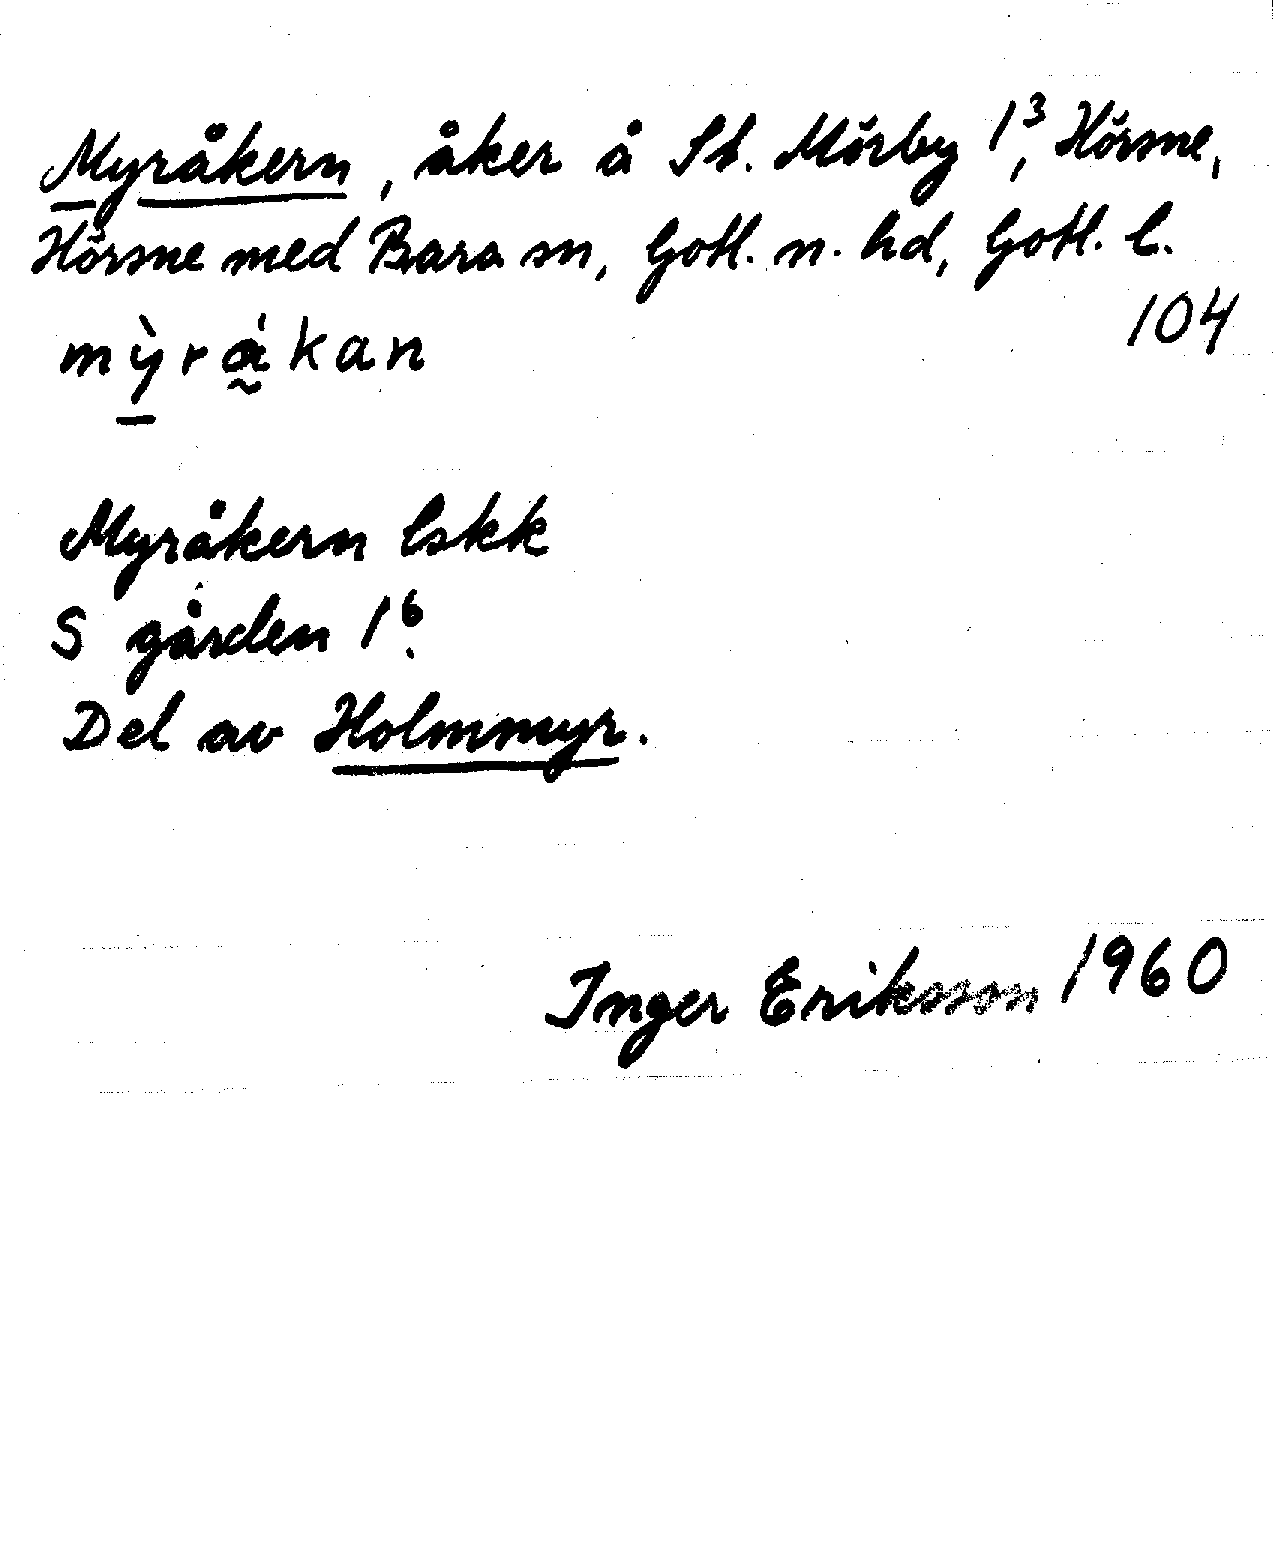 Myråkern, åker å St. Mörby 1³, Hörsne,
Hörsne med Bara sn, Gotl. n. hd, Gotl. l.
104
mỳrákan
Myråkern lskk
S gården 1⁶.
Del av Holmmyr.
Inger Eriksson 1960